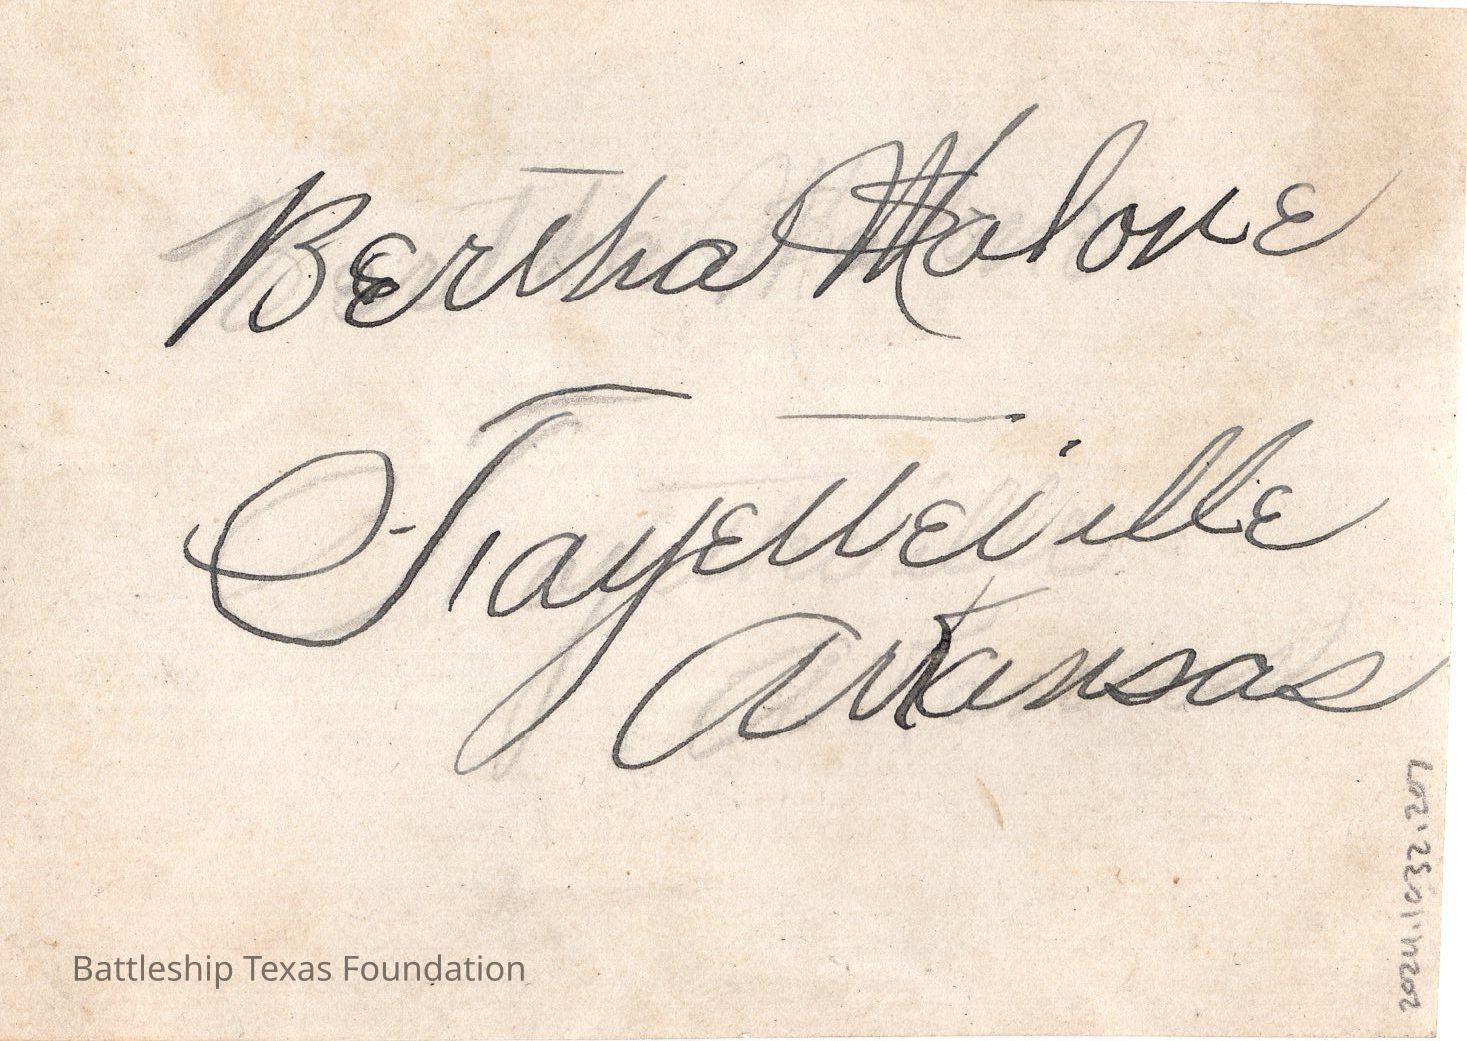 Bertha Malone
Fayetteville
Arkansas
Battleship Texas Foundation
2024.1032.207